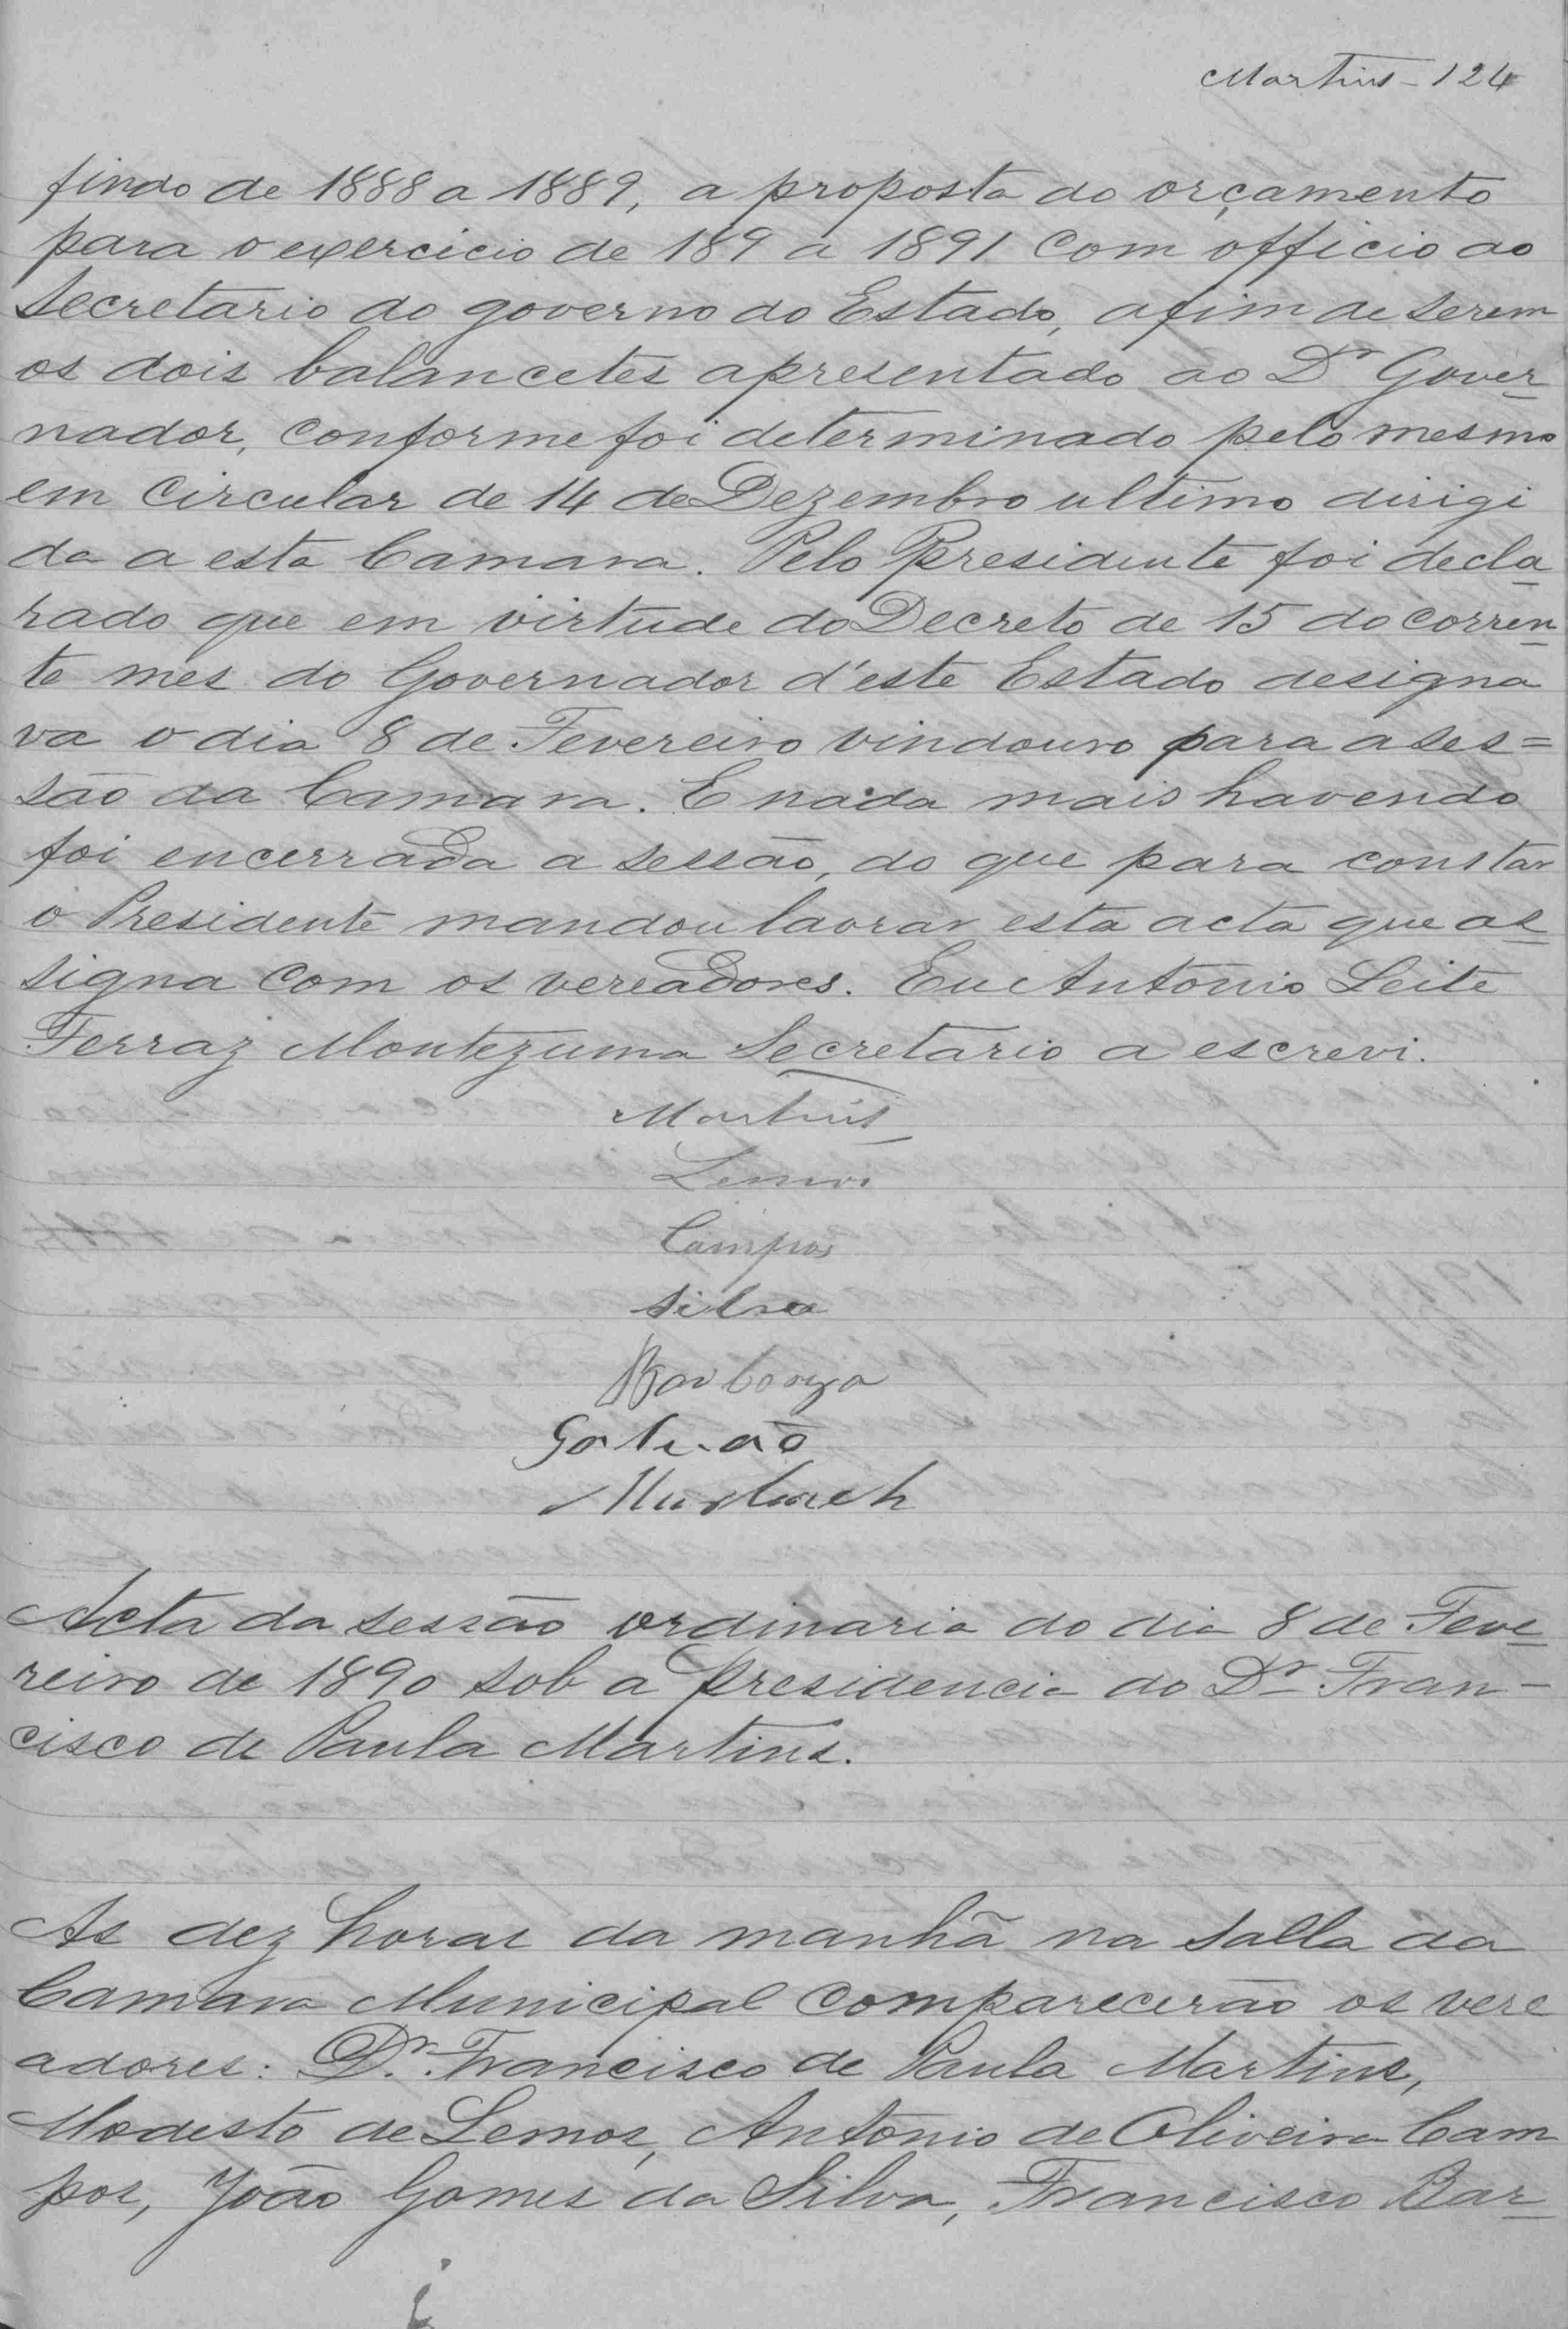 Martins - 124
findo de 1888 a 1889, a proposta do orçamento
para o exercicio de 189 a 1891 com officio ao
Secretario do governo do Estado, afim de serem
os dois balancetes apresentado ao Dr Gover
nador, conforme foi determinado pelo mesmo
em circular de 14 de Dezembro ultimo dirigi
da a esta Camara. Pelo Presidente foi decla
rado que em virtude do Decreto de 15 do corren
te mes do Governador d'este Estado designa
va o dia 8 de Fevereiro vindouro para a ses=
são da Camara. E nada mais havendo
foi encerrada a sessão, do que para constar
o Presidente mandou lavrar esta acta que as
signa com os vereadores. Eu Antonio Leite
Ferraz Montezuma Secretario a escrevi.
Martins
Lemos
Campos
Silva
Barboza
Galvão
Murbach
Acta da sessão ordinaria do dia 8 de Feve
reiro de 1890 sob a presidencia do Dr Fran-
cisco de Paula Martins.
As dez horas da manhã na salla da
Camara Municipal comparecerão os vere
adores: Dr. Francisco de Paula Martins,
Modesto de Lemos, Antonio de Oliveira Cam
pos, João Gomes da Silva, Francisco Bar